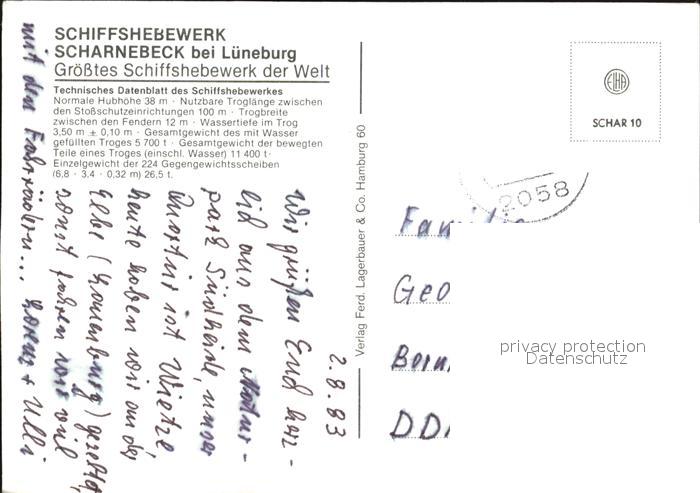 SCHIFFSHEBEWERK
SCHARNEBECK bei Lüneburg
Größtes Schiffshebewerk der Welt
Technisches Datenblatt des Schiffshebewerkes
Normale Hubhöhe 38 m · Nutzbare Troglänge zwischen
den Stoßschutzeinrichtungen 100 m · Trogbreite
zwischen den Fendern 12 m · Wassertiefe im Trog
3,50 m ± 0,10 m · Gesamtgewicht des mit Wasser
gefüllten Troges 5 700 t · Gesamtgewicht der bewegten
Teile eines Troges (einschl. Wasser) 11 400 t ·
Einzelgewicht der 224 Gegengewichtsscheiben
(6,8 · 3,4 · 0,32 m) 26,5 t.
2.8.83
Wir grüßen Euch herz-
lich aus dem Natur-
park Südheide, unser
Quartier ist Wietze
heute haben wir an der
Elbe (Lauenburg) gezeltet,
sonst fahren wir viel
mit den Fahrrädern... Lorenz + Ulli
Verlag Ferd. Lagerbauer & Co. Hamburg 60
EIHA
SCHAR 10
2058
Familie
Geo
Bern
DD
privacy protection
Datenschutz